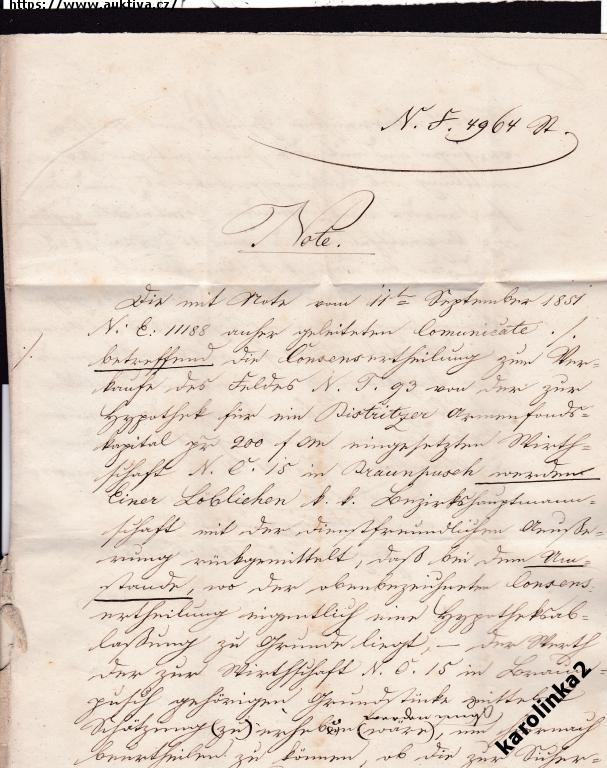 https://www.auktiva.cz/
N. F. 4964 St.
Note.
Die mit Note vom 11ten September 1851
N. E. 11188 anher geleiteten Comunicate ./.
betreffend die Consensertheilung zum Ver-
kaufe des Feldes N. T. 93 von der zur
Hypothek für ein Bistritzer Armenfonds-
kapital pr 200 f CM eingesetzten Wirth-
schaft N. C. 15 in Braunpusch werden
Einer Loblichen k. k. Bezirkshauptmann-
schaft mit der dienstfreundlichen Aeuße-
rung rückgemittelt, daß bei dem Um-
stande, wo der obenbezeichneten Consens-
ertheilung eigentlich eine Hypotheksab-
lassung zu Grunde liegt, – der Werth
der zur Wirthschaft N. C. 15 in Braun-
pusch gehörigen Grundstücke mittelst
Schätzung (zu) erheben (wäre), um hernach
beurtheilen zu können, ob die zur Sicher-
karolinka2